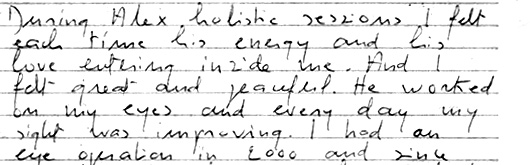 During Alex holistic sessions I felt
each time his energy and his
love entering inside me. And I
felt great and peaceful. He worked
on my eyes and every day my
sight was improving. I had an
eye operation in 2000 and since